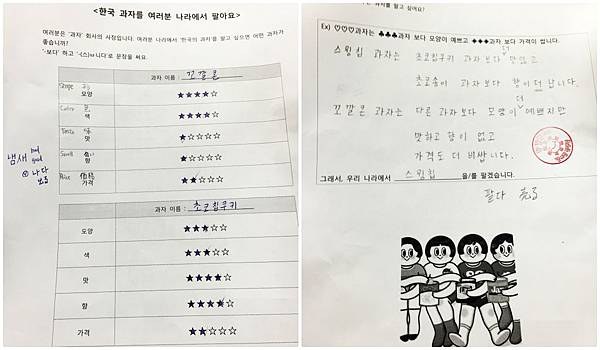 <한국 과자를 여러분 나라에서 팔아요>
여러분은 '과자' 회사의 사장입니다. 여러분 나라에서 '한국의 과자'를 팔고 싶으면 어떤 과자가
좋습니까?
'-보다' 하고 '-(스)ㅂ니다'로 문장을 써요.
과자 이름 : 꼬깔콘
Shape 形
모양 ★★★★☆
Color 色
색 ★★★★☆
Taste 味
맛 ★☆☆☆☆
Smell
향 ★☆☆☆☆
Price 価格
가격 ★★☆☆☆
냄새 bad
good
나다
과자 이름 : 초코칩쿠키
모양 ★★★☆☆
색 ★★★☆☆
맛 ★★★★☆
향 ★★★★☆
가격 ★★☆☆☆
를 팔고 싶어요?
Ex) ♡♡♡과자는 ♣♣♣과자 보다 모양이 예쁘고 ◈◈◈과자 보다 가격이 쌉니다.
스윙칩 과자는 초코칩쿠키 과자보다 더 맛있고
과자보다 향이 더 납니다.
꼬깔콘 과자는 다른 과자보다 모양이 더 예쁘지만
향이 없고
가격도 더 비쌉니다.
그래서, 우리 나라에서 스윙칩 을/를 팔겠습니다.
팔다 売る